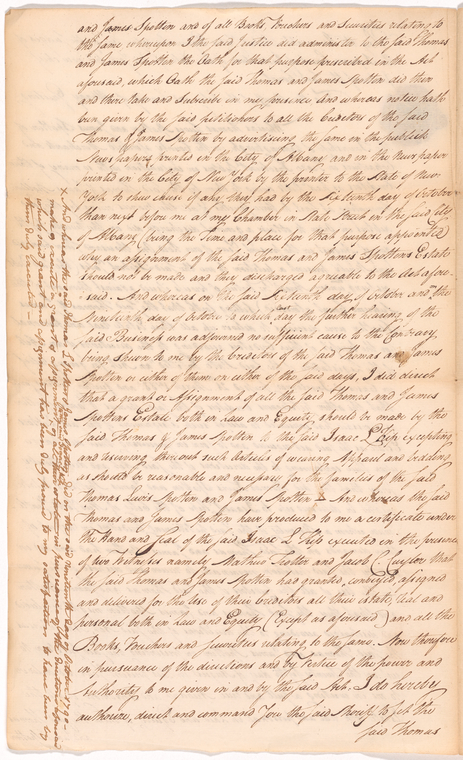 and James Shotten and of all Books Vouchers and Securities relating to
the same whereupon I the said Justice did administer to the said Thomas
and James Shotten the Oath for that purpose prescribed in the Act
aforesaid, which Oath the said Thomas and James Shotten did then
and there take and Subscribe in my presence And whereas notice hath
been given by the said petitioners to all the Creditors of the said
Thomas & James Shotten by advertising the same in the publick
News papers printed in the City of Albany and in the News paper
printed in the City of New York by the printer to the State of New
York to shew cause if any they had by the Sixteenth day of October
than next before me at my Chamber in State Street in the said City
of Albany (being the Time and place for that purpose appointed)
why an assignment of the said Thomas and James Shottens Estate
should not be made and they discharged agreeable to the Act afore-
-said. And whereas on the said Sixteenth day of October and on the
Nineteenth day of October to which day the further hearing of the
said Business was adjourned no sufficient cause to the Contrary
being shewn to me by the Creditors of the said Thomas and James
Shotten or either of them on either of the said days, I did direct
that a grant or Assignment of all the said Thomas and James
Shottens Estate both in law and Equity should be made by the
said Thomas & James Shotten to the said Isaac L Kip excepting
and reserving thereout such Articles of wearing Apparel and bedding
as should be reasonable and necessary for the families of the said
Thomas Lewis Shotten and James Shotten X And whereas the said
Thomas and James Shotten have produced to me a certificate under
the Hand and seal of the said Isaac L Kip executed in the presence
of two Witnesses namely Mathew Trotter and Jacob C Cuyler that
the said Thomas and James Shotten had granted, conveyed, assigned
and delivered for the Use of their Creditors all their estate, real and
personal both in Law and Equity (Except as aforesaid) and all the
Books, Vouchers and securities relating to the same. Now therefore
in pursuance of the directions and by Virtue of the power and
Authority to me given in and by the said Act. I do hereby
authorise, direct and command You the said Sheriff to set the
said Thomas
X And whereas the said Thomas L Shotten & James Shotten did on the said Nineteenth day of October 1790
made a grant or Assignment
which said grant and assignment has been duly proved to my satisfaction to have been by
them duly executed —